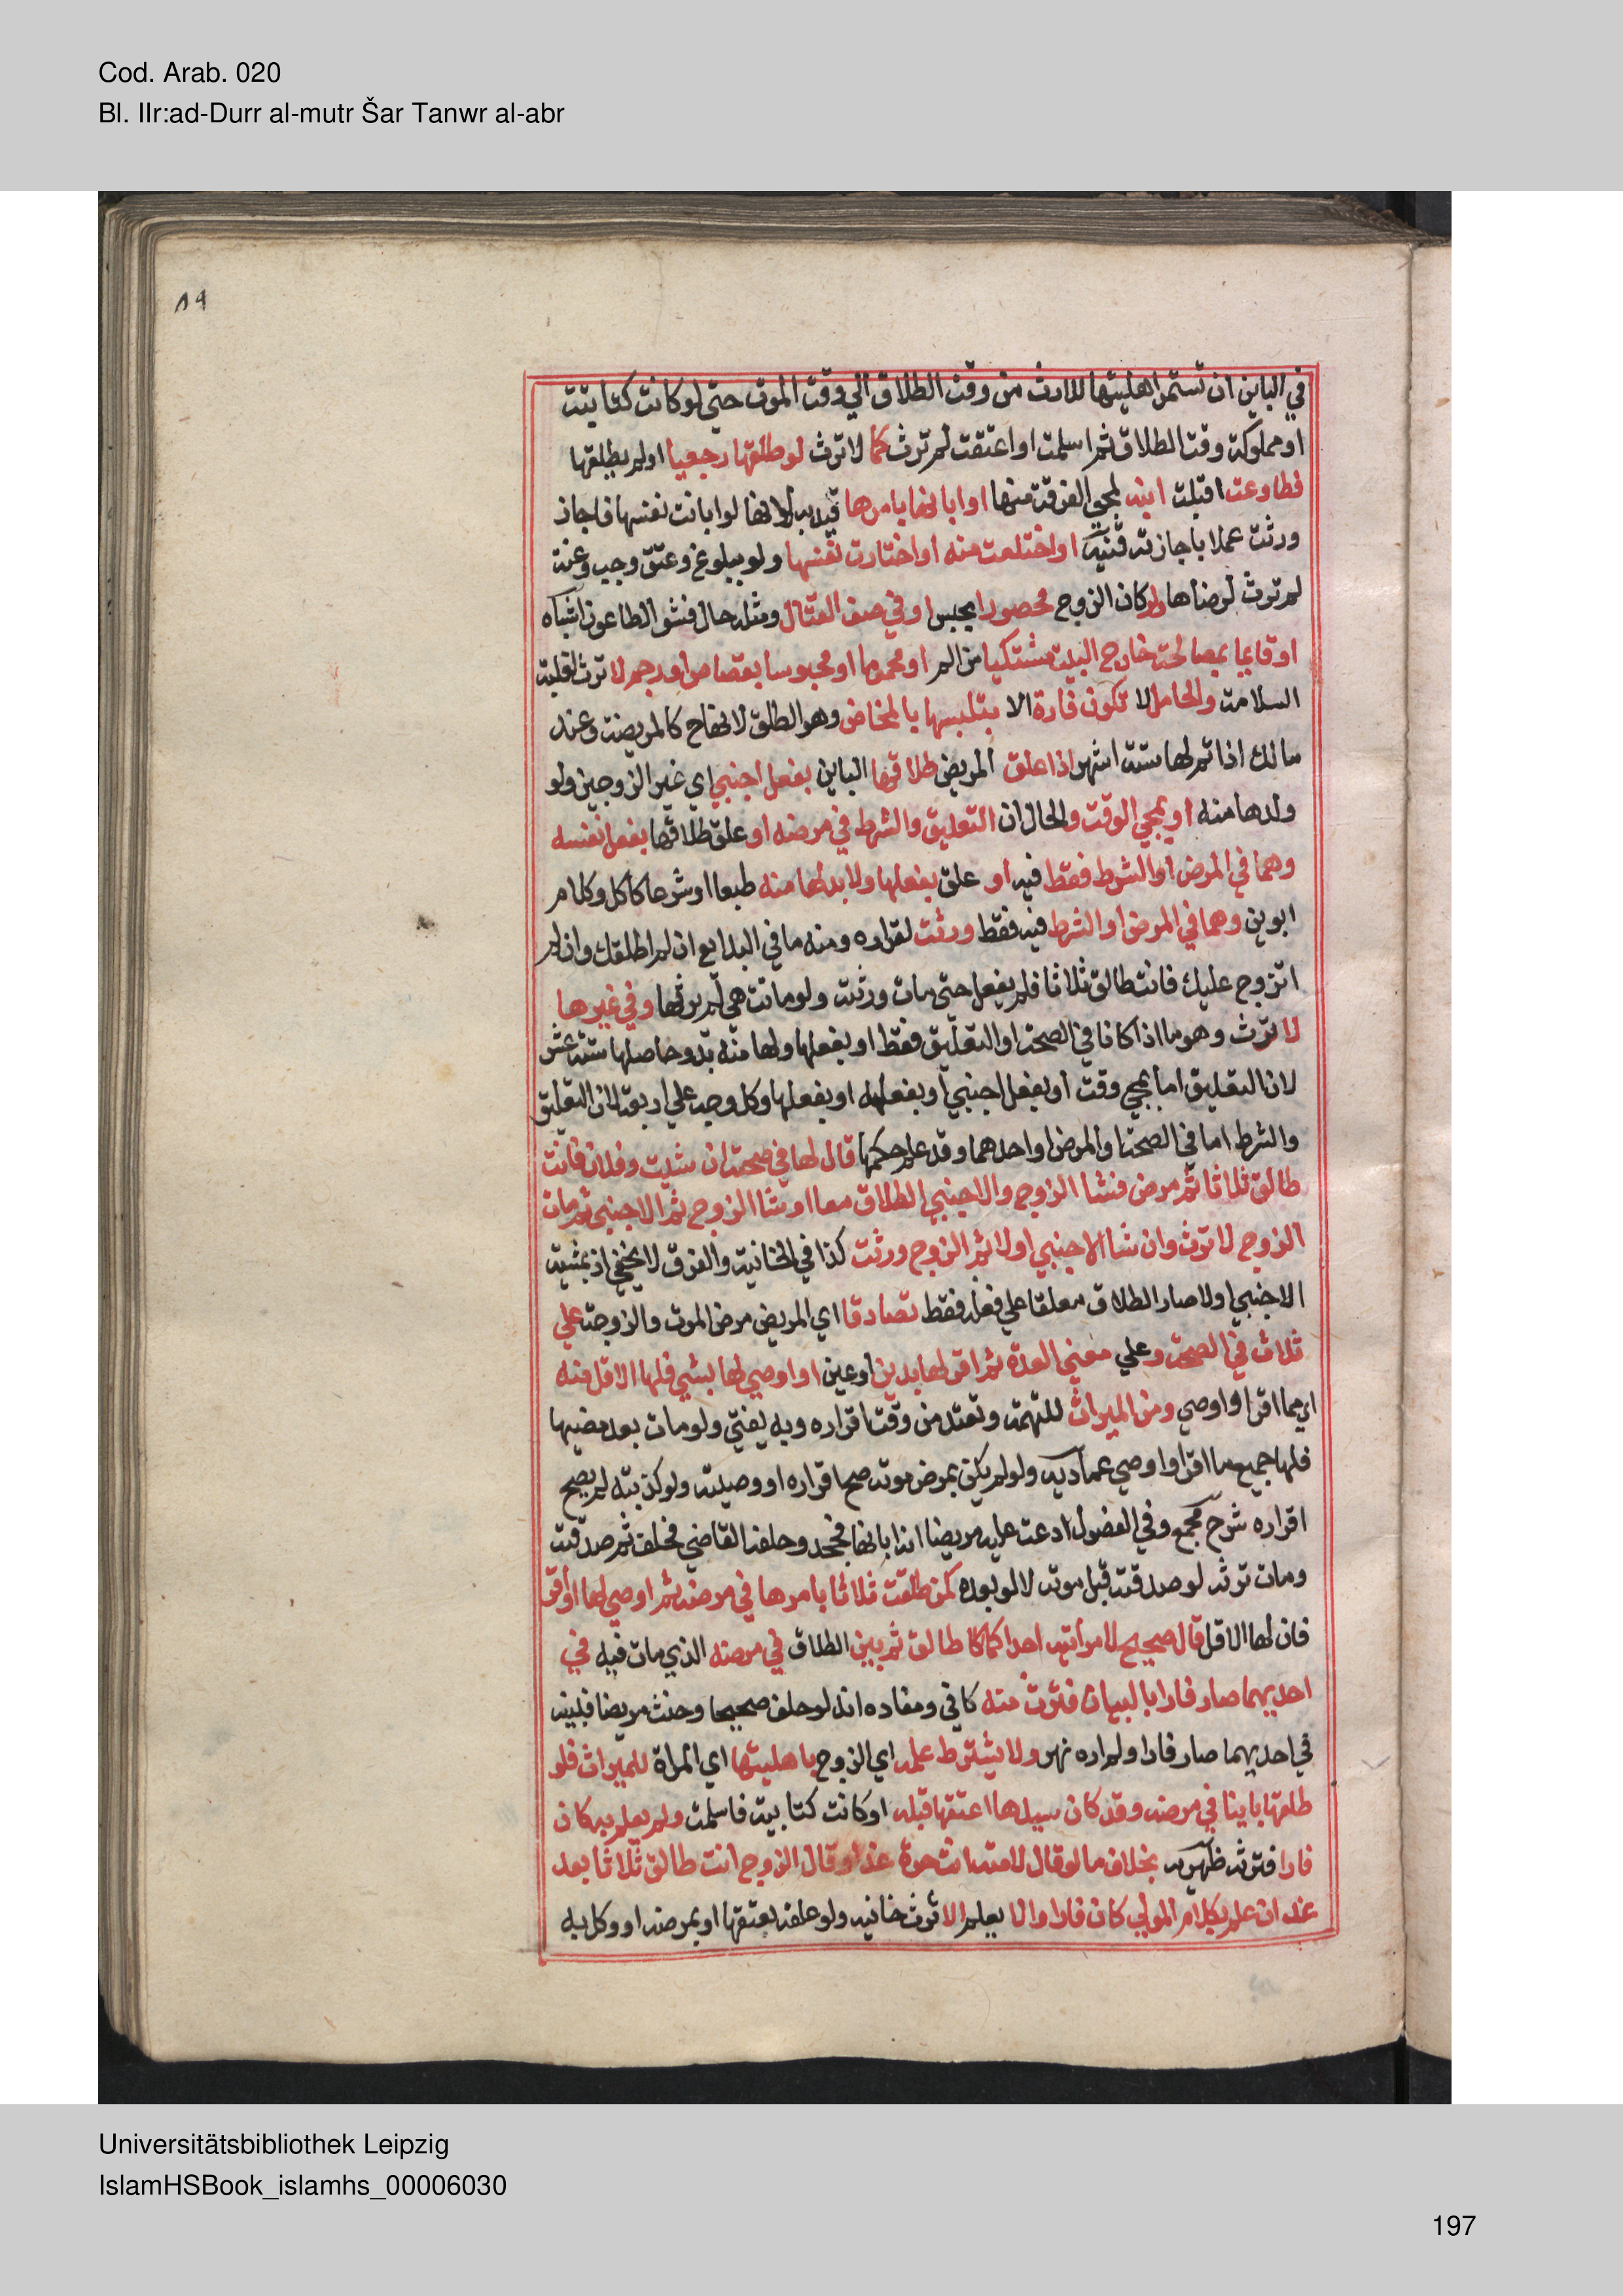 Cod. Arab. 020
Bl. IIr:ad-Durr al-mutr Šar Tanwr al-abr
٨٩
في الباين ان تستمر اهليتها للارث من وقت الطلاق الي وقت الموت حتي لو كانت كتابية
او مملوكة وقت الطلاق ثم اسلمت او اعتقت لم ترث كما لا ترث لو طلقها رجعيا او لم يطلقها
فطاوعت اوقبلت ابنه لمجي الفرقة منها او ابانها بامرها قيد به لانها لو ابانت نفسها فاجاز
ورثت عملا باجازته قنية او اختلعت منه او اختارت نفسها ولو ببلوغ وعتق وجب وعنة
لم ترث لرضاها ولو كان الزوج محصورا بحبس او في صف القتال ومثله حال فشو الطاعون اشباه
او قايما بمصالحه خارج البيت مشتكيا من الم او محموما او محبوسا بقصاص او رجم لا ترث لغلبة
السلامة والحامل لا تكون فارة الا بتلبسها بالمخاض وهو الطلق لانها ح كالمريضة وعند
مالك اذا تم لها ستة اشهر اذا علق المريض طلاقها الباين بفعل اجنبي اي غير الزوجين ولو
ولدها منه او بمجي الوقت والحال ان التعليق والشرط في مرضه او علق طلاقها بفعل نفسه
وهما في المرض او الشرط فقط فيه او علق بفعلها ولا بد لها منه طبعا او شرعا كاكل وكلام
ابوين وهما في المرض او الشرط فيه فقط ورثت لفراره ومنه ما في البدايع ان لم اطلقك وان لم
اتزوج عليك فانت طالق ثلاثا فلم يفعل حتي مات ورثت ولو ماتت هي لم يرثها وفي غيرها
لا ترث وهو ما اذا كانا في الصحة او التعليق فقط او بفعلها ولها منه بد وحاصلها ستة عشر
لان التعليق اما بمجي وقت او بفعل اجنبي او بفعله او بفعلها وكل وجه علي اربعة لان التعليق
والشرط اما في الصحة او المرض او احدهما وقد علم حكمها قال لها في صحته ان شيت وفلان فانت
طالق ثلاثا ثم مرض فشا الزوج والاجنبي الطلاق معا او شا الزوج ثم الاجنبي ثم مات
الزوج لا ترث وان شا الاجنبي اولا ثم الزوج ورثت كذا في الخانية والفرق لا يخفي اذ بمشية
الاجنبي اولا صار الطلاق معلقا علي فعله فقط تصادقا اي المريض مرض الموت والزوجة علي
ثلاث في الصحة وعلي مضي العدة ثم اقر لها بدين او عين او اوصي لها بشي فلها الاقل منه
اي مما اقر او اوصي ومن الميراث للتهمة وتعتد من وقت اقراره وبه يفتي ولو مات بعد مضيها
فلها جميع ما اقر او اوصي عمادية ولو لم يكن بمرض موته صح اقراره او وصيته ولو كذبته لم يصح
اقراره شرح مجمع وفي الفصول ادعت عليه مريضا انه ابانها فجحد وحلفه القاضي فحلف ثم صدقته
ومات ترثه لو صدقته قبل موته لا لو بعده كمن طلقت ثلاثا بامرها في مرضه ثم اوصي لها او اقر
فان لها الاقل قال صحيح لامراتيه احداكما طالق ثم بين الطلاق في مرضه الذي مات فيه في
احديهما صار فارا بالبيان فترث منه كافي ومفاده انه لو حلف صحيحا وحنث مريضا فبينه
في احديهما صار فارا ولم اره نهر ولا يشترط علمه اي الزوج باهليتها اي المراة للميراث فلو
طلقها باينا في مرضه وقد كان سيدها اعتقها قبله او كانت كتابية فاسلمت ولم يعلم به كان
فارا فترثه ظهيرية بخلاف ما لو قال لامته انت حرة غدا وقال الزوج انت طالق ثلاثا بعد
غد ان علم بكلام المولي كان فارا والا يعلم لا ترث خانية ولو علقه بعتقها او بمرضه او وكله به
Universitätsbibliothek Leipzig
IslamHSBook_islamhs_00006030
197